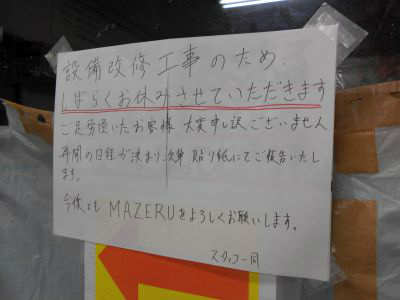 設備改修工事のため.
しばらくお休みさせていただきます
ご足労頂いたお客様 大変申し訳ございません
再開の日程が決まり次第 貼り紙にてご報告いたし
ます。
今後とも MAZERUをよろしくお願いします。
スタッフ一同